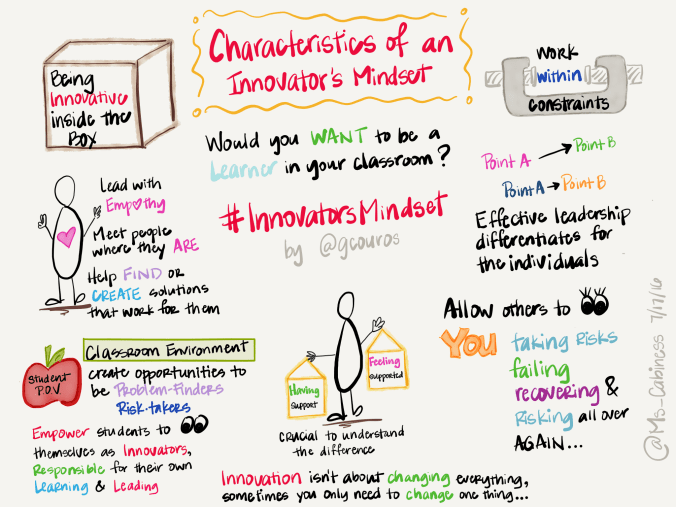 Characteristics of an
Innovator's Mindset
Being
Innovative
inside the
Box
Work
within
constraints
Would you WANT to be a
Learner in your classroom?
#InnovatorsMindset
by @gcouros
Point A → Point B
Point A → Point B
Effective leadership
differentiates for
the individuals
Lead with
Empathy
Meet people
where they ARE
Help FIND or
CREATE solutions
that work for them
Allow others to
You
taking Risks
failing
recovering &
Risking all over
AGAIN...
Student
P.O.V.
Classroom Environment
create opportunities to
be Problem-Finders
Risk-takers
Empower students to
themselves as Innovators,
Responsible for their own
Learning & Leading
Having
Support
Feeling
Supported
crucial to understand
the difference
Innovation isn't about changing everything,
sometimes you only need to change one thing...
@Ms_Cabiness 7/17/16